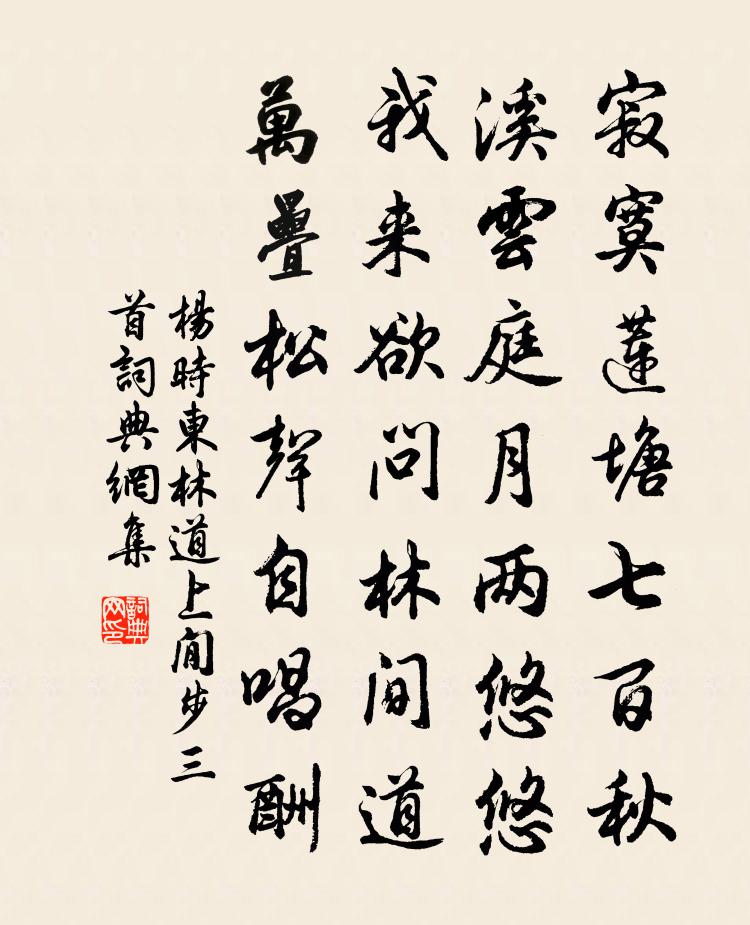 寂寞蓮塘七百秋
溪雲庭月两悠悠
我来欲問林間道
萬疊松聲自唱酬
楊時東林道上閒步三
首詞典網集
詞典网印